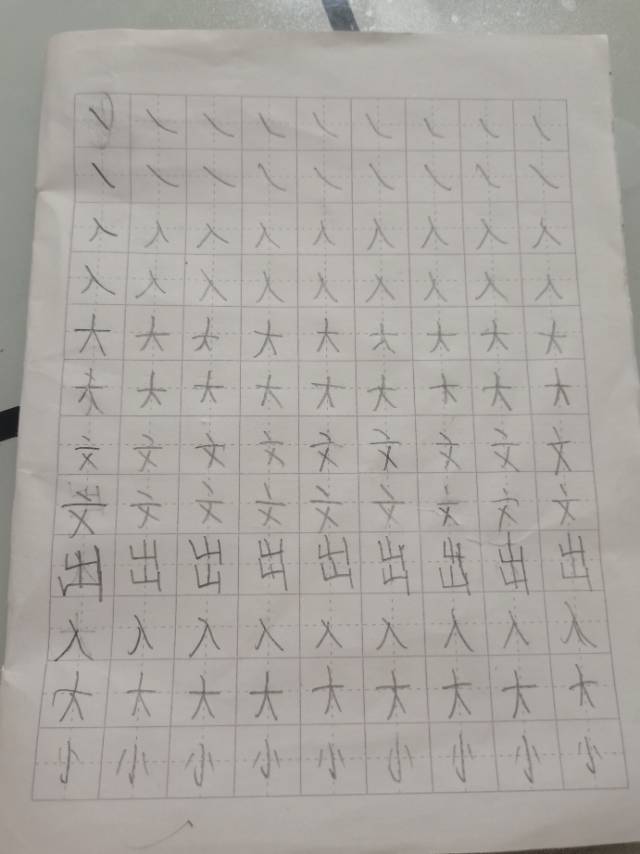 ㇏ ㇏ ㇏ ㇏ ㇏ ㇏ ㇏ ㇏ ㇏
㇏ ㇏ ㇏ ㇏ ㇏ ㇏ ㇏ ㇏ ㇏
入 入 入 入 入 入 入 入 入
入 入 入 入 入 入 入 入 入
大 大 大 大 大 大 大 大 大
大 大 大 大 大 大 大 大 大
文 文 文 文 文 文 文 文 文
文 文 文 文 文 文 文 文 文
出 出 出 出 出 出 出 出 出
入 入 入 入 入 入 入 入 入
大 大 大 大 大 大 大 大 大
小 小 小 小 小 小 小 小 小